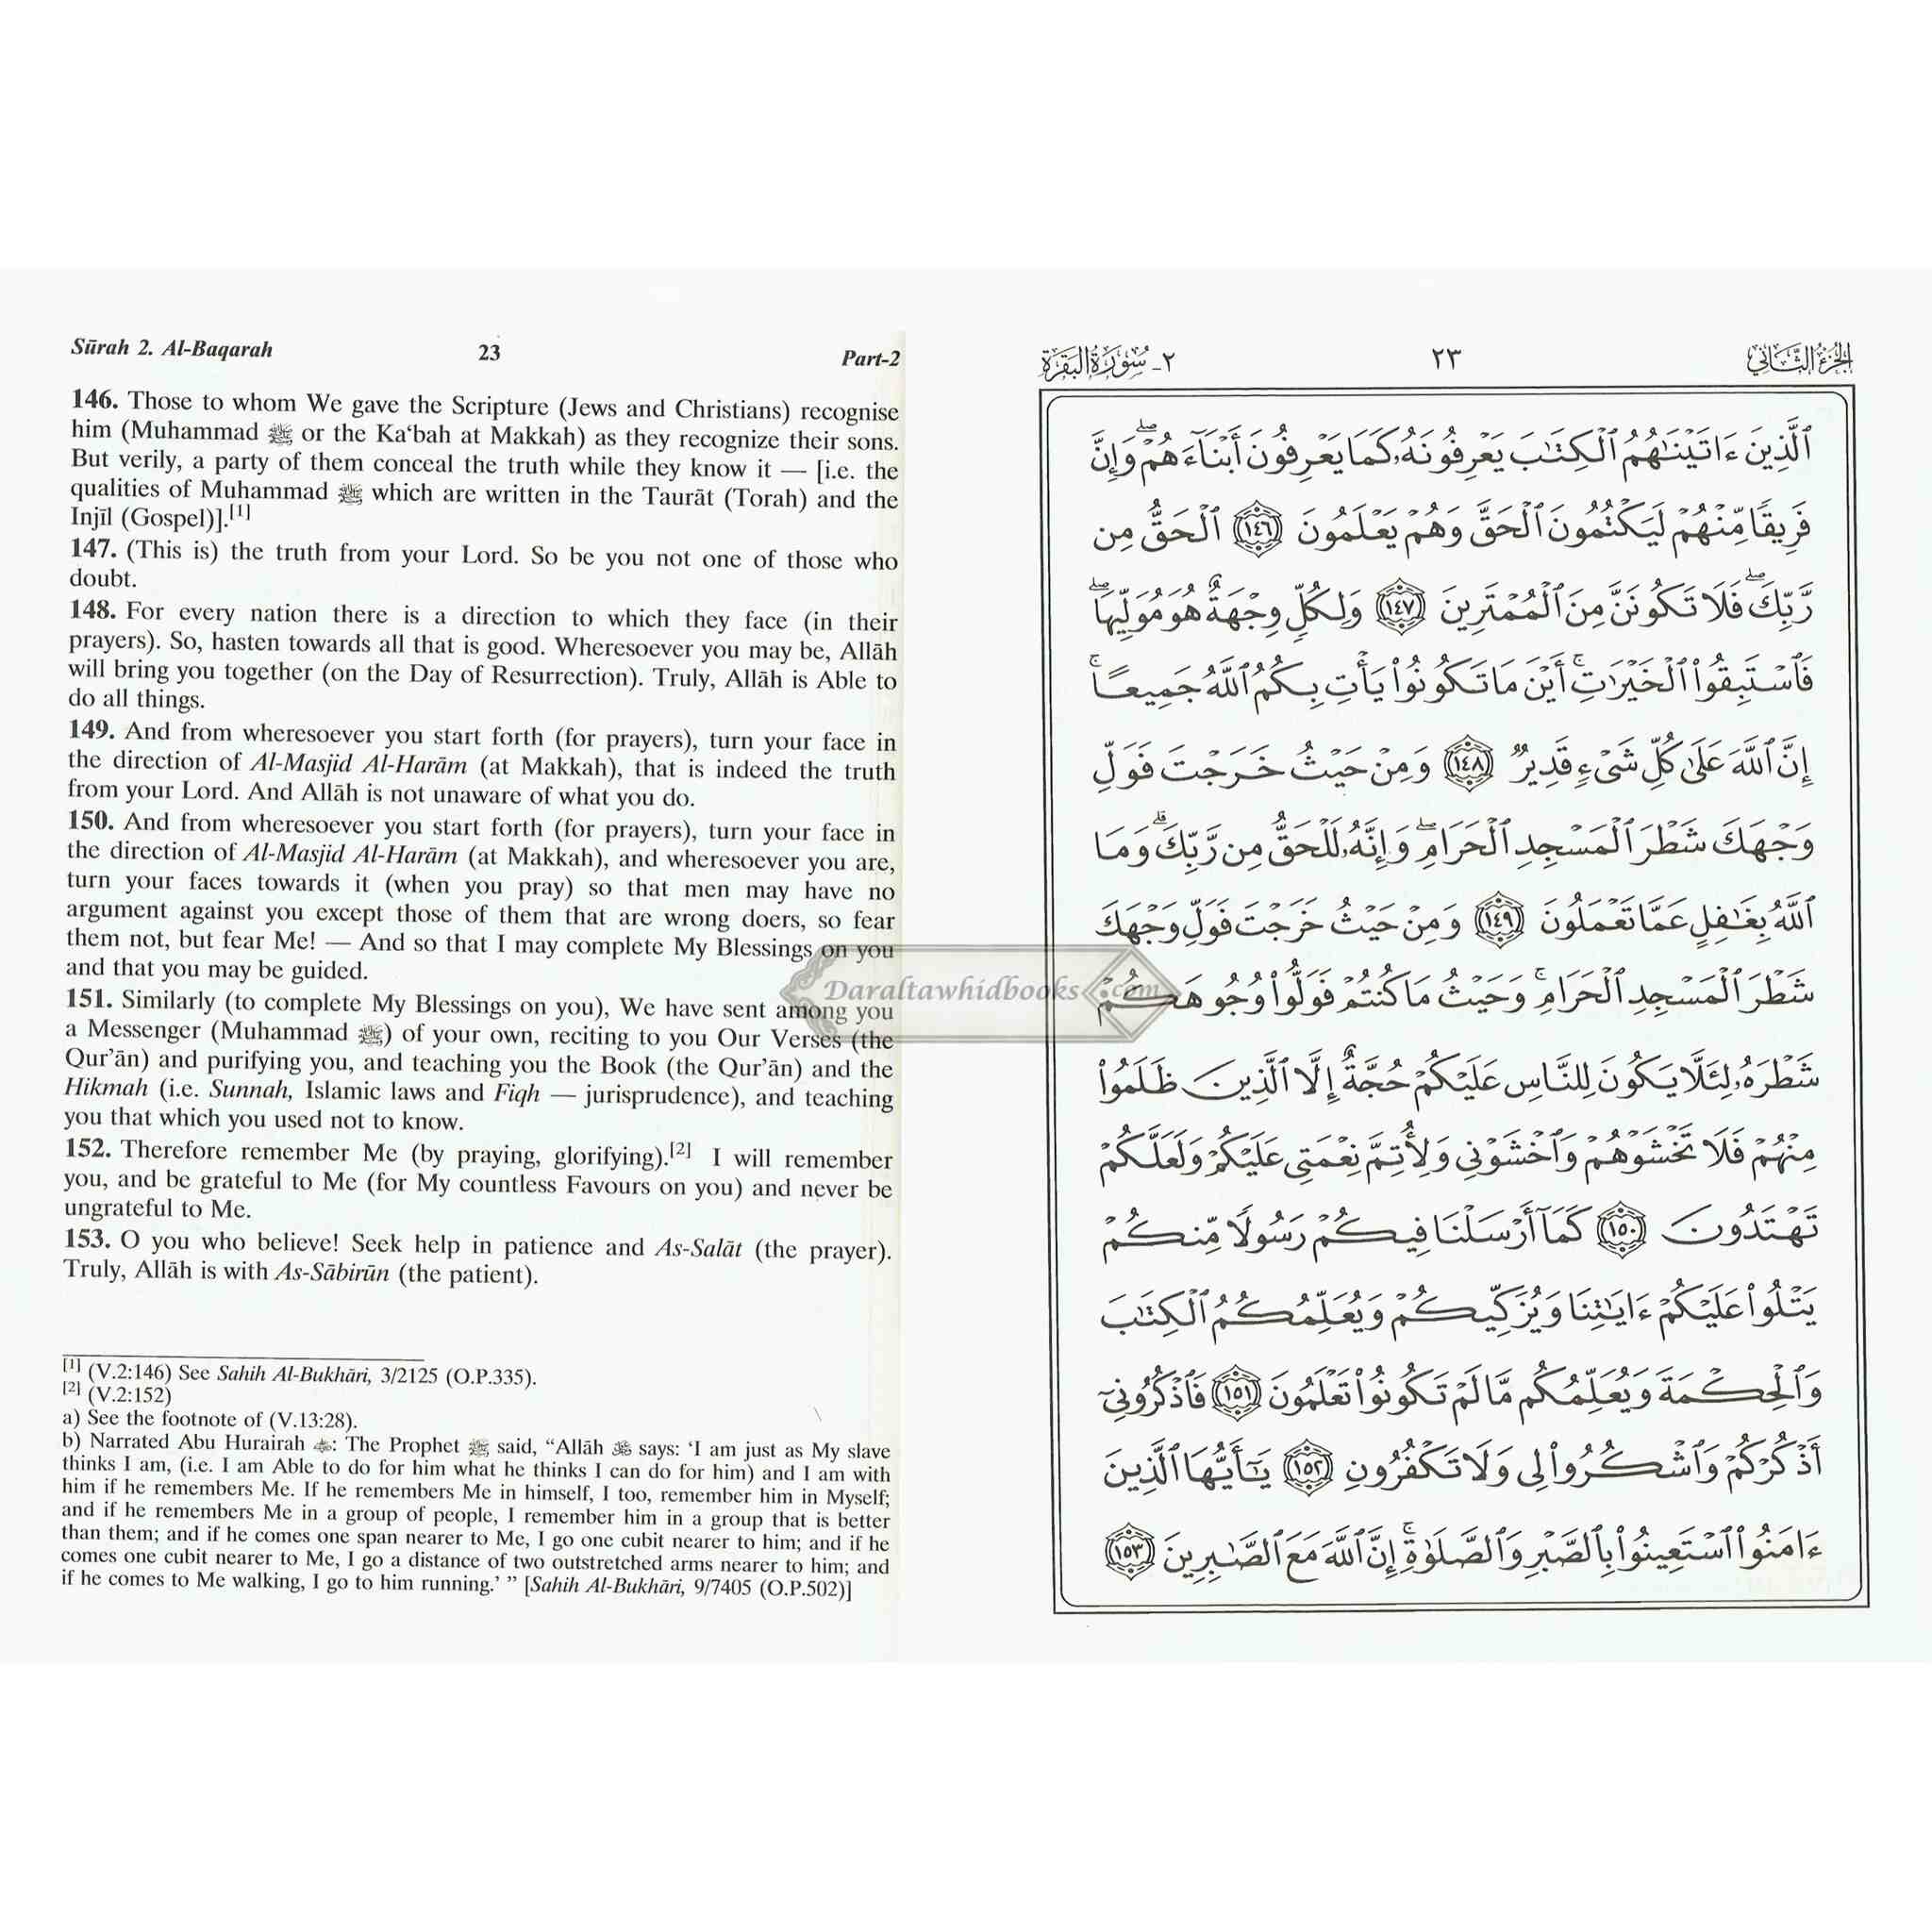 Sūrah 2. Al-Baqarah 23 Part-2
146. Those to whom We gave the Scripture (Jews and Christians) recognise
him (Muhammad ﷺ or the Ka‘bah at Makkah) as they recognize their sons.
But verily, a party of them conceal the truth while they know it — [i.e. the
qualities of Muhammad ﷺ which are written in the Taurāt (Torah) and the
Injīl (Gospel)].[1]
147. (This is) the truth from your Lord. So be you not one of those who
doubt.
148. For every nation there is a direction to which they face (in their
prayers). So, hasten towards all that is good. Wheresoever you may be, Allāh
will bring you together (on the Day of Resurrection). Truly, Allāh is Able to
do all things.
149. And from wheresoever you start forth (for prayers), turn your face in
the direction of Al-Masjid Al-Harām (at Makkah), that is indeed the truth
from your Lord. And Allāh is not unaware of what you do.
150. And from wheresoever you start forth (for prayers), turn your face in
the direction of Al-Masjid Al-Harām (at Makkah), and wheresoever you are,
turn your faces towards it (when you pray) so that men may have no
argument against you except those of them that are wrong doers, so fear
them not, but fear Me! — And so that I may complete My Blessings on you
and that you may be guided.
151. Similarly (to complete My Blessings on you), We have sent among you
a Messenger (Muhammad ﷺ) of your own, reciting to you Our Verses (the
Qur’ān) and purifying you, and teaching you the Book (the Qur’ān) and the
Hikmah (i.e. Sunnah, Islamic laws and Fiqh — jurisprudence), and teaching
you that which you used not to know.
152. Therefore remember Me (by praying, glorifying).[2] I will remember
you, and be grateful to Me (for My countless Favours on you) and never be
ungrateful to Me.
153. O you who believe! Seek help in patience and As-Salāt (the prayer).
Truly, Allāh is with As-Sābirūn (the patient).
[1] (V.2:146) See Sahih Al-Bukhāri, 3/2125 (O.P.335).
[2] (V.2:152)
a) See the footnote of (V.13:28).
b) Narrated Abu Hurairah: The Prophet ﷺ said, “Allāh says: ‘I am just as My slave
thinks I am, (i.e. I am Able to do for him what he thinks I can do for him) and I am with
him if he remembers Me. If he remembers Me in himself, I too, remember him in Myself;
and if he remembers Me in a group of people, I remember him in a group that is better
than them; and if he comes one span nearer to Me, I go one cubit nearer to him; and if he
comes one cubit nearer to Me, I go a distance of two outstretched arms nearer to him; and
if he comes to Me walking, I go to him running.’ ” [Sahih Al-Bukhāri, 9/7405 (O.P.502)]
الجزء الثاني ٢٣ ٢- سورة البقرة
ٱلَّذِينَ ءَاتَيْنَٰهُمُ ٱلْكِتَٰبَ يَعْرِفُونَهُۥ كَمَا يَعْرِفُونَ أَبْنَآءَهُمْ ۖ وَإِنَّ
فَرِيقًا مِّنْهُمْ لَيَكْتُمُونَ ٱلْحَقَّ وَهُمْ يَعْلَمُونَ ١٤٦ ٱلْحَقُّ مِن
رَّبِّكَ ۖ فَلَا تَكُونَنَّ مِنَ ٱلْمُمْتَرِينَ ١٤٧ وَلِكُلٍّ وِجْهَةٌ هُوَ مُوَلِّيهَا ۖ
فَٱسْتَبِقُوا۟ ٱلْخَيْرَٰتِ ۚ أَيْنَ مَا تَكُونُوا۟ يَأْتِ بِكُمُ ٱللَّهُ جَمِيعًا ۚ
إِنَّ ٱللَّهَ عَلَىٰ كُلِّ شَىْءٍ قَدِيرٌ ١٤٨ وَمِنْ حَيْثُ خَرَجْتَ فَوَلِّ
وَجْهَكَ شَطْرَ ٱلْمَسْجِدِ ٱلْحَرَامِ ۖ وَإِنَّهُۥ لَلْحَقُّ مِن رَّبِّكَ ۗ وَمَا
ٱللَّهُ بِغَٰفِلٍ عَمَّا تَعْمَلُونَ ١٤٩ وَمِنْ حَيْثُ خَرَجْتَ فَوَلِّ وَجْهَكَ
شَطْرَ ٱلْمَسْجِدِ ٱلْحَرَامِ ۚ وَحَيْثُ مَا كُنتُمْ فَوَلُّوا۟ وُجُوهَكُمْ
شَطْرَهُۥ لِئَلَّا يَكُونَ لِلنَّاسِ عَلَيْكُمْ حُجَّةٌ إِلَّا ٱلَّذِينَ ظَلَمُوا۟
مِنْهُمْ فَلَا تَخْشَوْهُمْ وَٱخْشَوْنِى وَلِأُتِمَّ نِعْمَتِى عَلَيْكُمْ وَلَعَلَّكُمْ
تَهْتَدُونَ ١٥٠ كَمَآ أَرْسَلْنَا فِيكُمْ رَسُولًا مِّنكُمْ
يَتْلُوا۟ عَلَيْكُمْ ءَايَٰتِنَا وَيُزَكِّيكُمْ وَيُعَلِّمُكُمُ ٱلْكِتَٰبَ
وَٱلْحِكْمَةَ وَيُعَلِّمُكُم مَّا لَمْ تَكُونُوا۟ تَعْلَمُونَ ١٥١ فَٱذْكُرُونِىٓ
أَذْكُرْكُمْ وَٱشْكُرُوا۟ لِى وَلَا تَكْفُرُونِ ١٥٢ يَٰٓأَيُّهَا ٱلَّذِينَ
ءَامَنُوا۟ ٱسْتَعِينُوا۟ بِٱلصَّبْرِ وَٱلصَّلَوٰةِ ۚ إِنَّ ٱللَّهَ مَعَ ٱلصَّٰبِرِينَ ١٥٣
Daraltawhidbooks.com